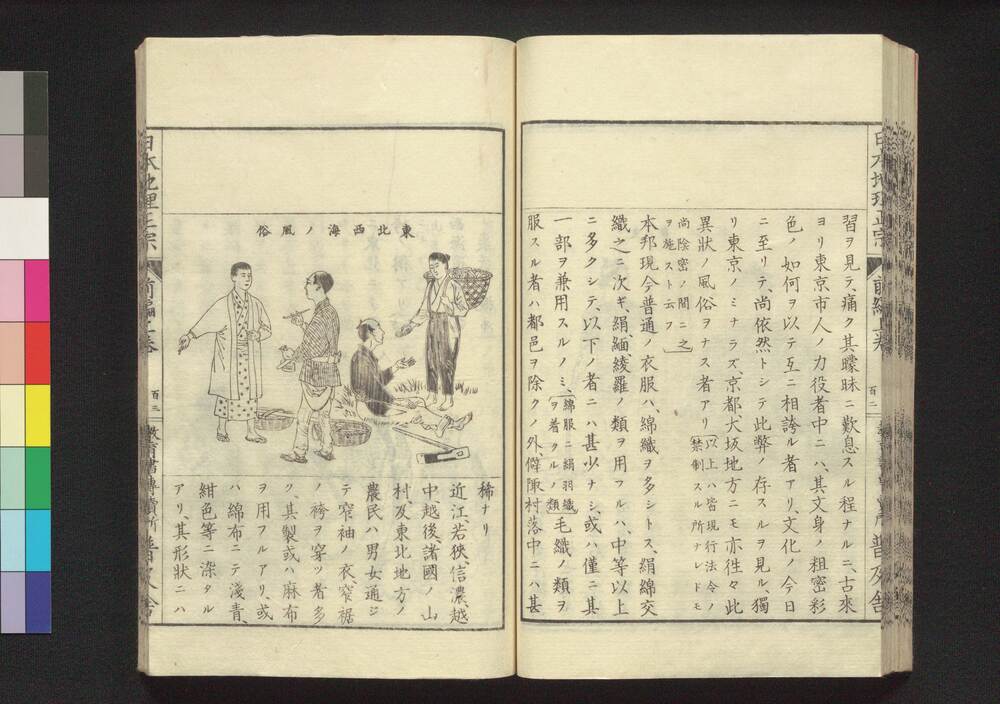 習ヲ見テ、痛ク其曚昧ニ歎息スル程ナルニ、古來
ヨリ東京市人ノ力役者中ニハ、其文身ノ粗密彩
色ノ如何ヲ以テ互ニ相誇ル者アリ、文化ノ今日
ニ至リテ、尚依然トシテ此弊ノ存スルヲ見ル、獨
リ東京ノミナラズ、京都、大坂地方ニモ亦往々此
異狀ノ風俗ヲナス者アリ
以上ハ皆現行法令ノ
禁制スル所ナレドモ
尚陰密ノ間ニ之
ヲ施スト云フ
本邦現今普通ノ衣服ハ、綿織ヲ多シトス、絹綿交
織之ニ次ギ、絹、緬、綾羅ノ類ヲ用フルハ、中等以上
ニ多クシテ、以下ノ者ニハ甚少ナシ、或ハ僅ニ其
一部ヲ兼用スルノミ、
綿服ニ絹羽織
ヲ着クルノ類
毛織ノ類ヲ
服スル者ハ都邑ヲ除クノ外、僻陬村落中ニハ甚
日本地理正宗
前編上卷
百二
普及舎
東北西海ノ風俗
稀ナリ
近江、若狹、信濃、越
中、越後、諸國ノ山
村、及東北地方ノ
農民ハ男女通ジ
テ窄袖ノ衣、窄裾
ノ袴ヲ穿ツ者多
ク、其製或ハ麻布
ヲ用フルアリ、或
ハ綿布ニテ淺靑、
紺色等ニ染タル
アリ、其形狀ニハ
日本地理正宗
前編上卷
百三